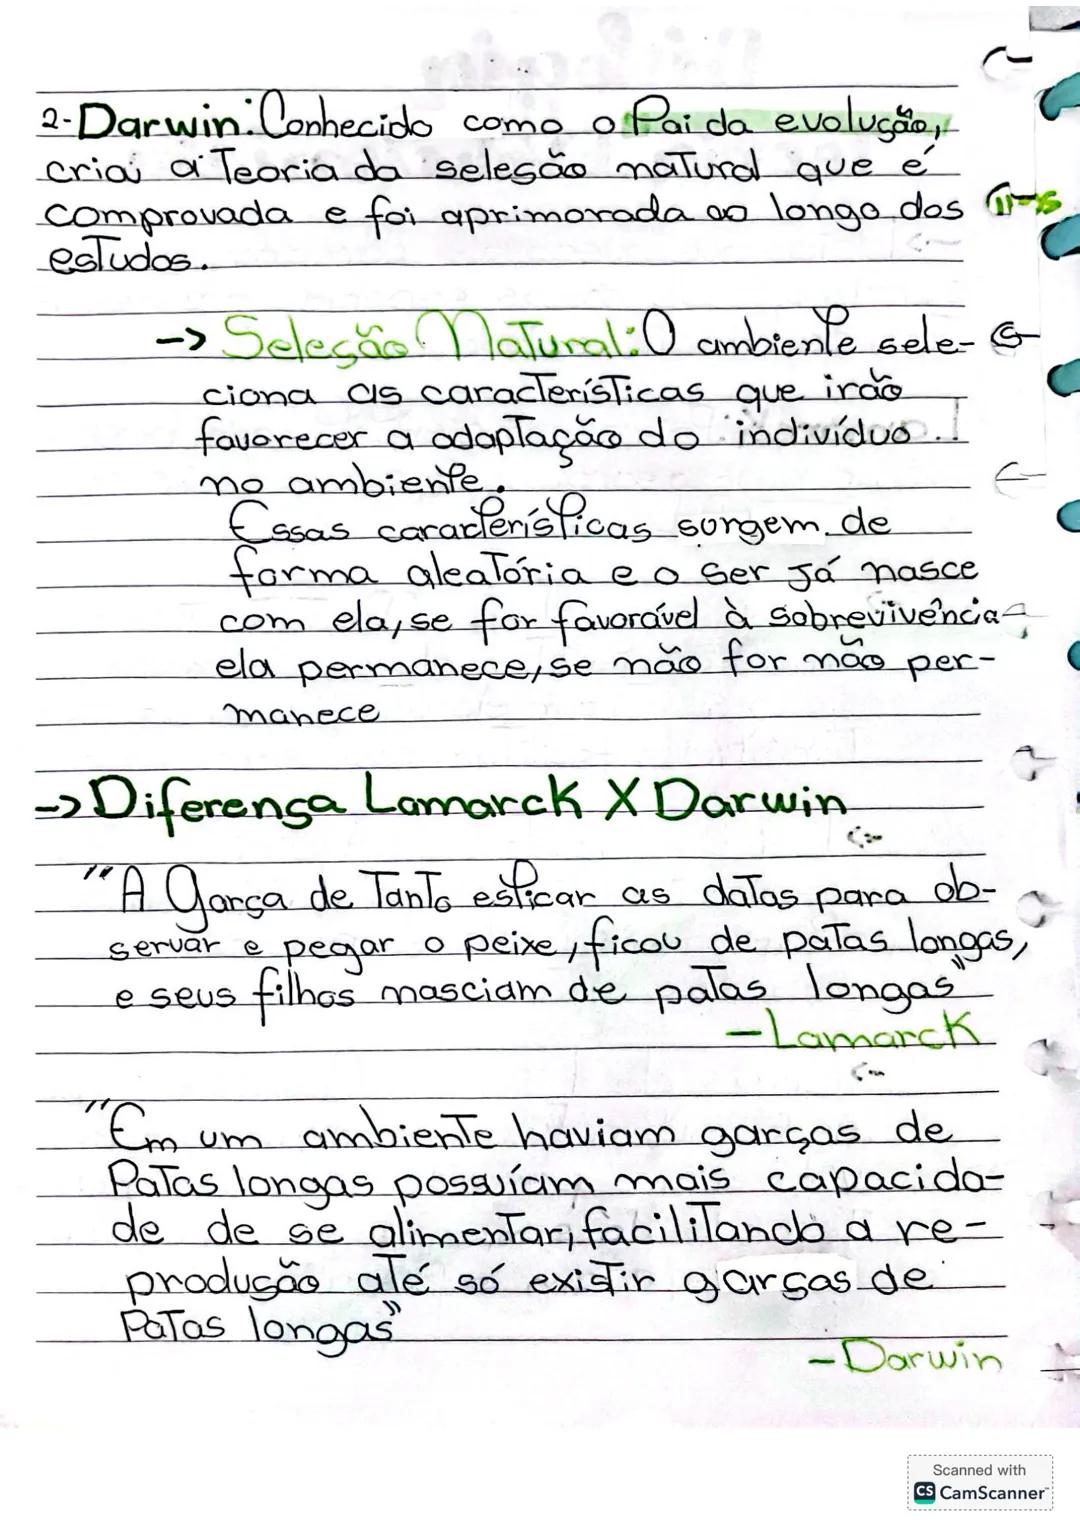 2-Darwin: Conhecido como o Pai da evolução,
criai a Teoria da seleção natural que é
comprovada e foi aprimorada ao longo dos
estudos.
-> Seleção Natural: O ambiente sele-
ciona as características que irão
favorecer a adaptação do indivíduo
no ambiente.
Essas características surgem de
forma aleatória e o ser já nasce
com ela, se for favorável à sobrevivência
ela permanece, se não for não per-
manece
-> Diferença Lamarck X Darwin
"A Garça de Tanto esticar as datas para ob-
servar e pegar o peixe, ficou de patas longas,
e seus filhos nasciam de patas longas"
- Lamarck
"Em um ambiente haviam garças de
Patas longas possuíam mais capacida-
de de se alimentar, facilitando a re-
produção até só existir garças de
Patas longas"
- Darwin
Scanned with
CS CamScanner